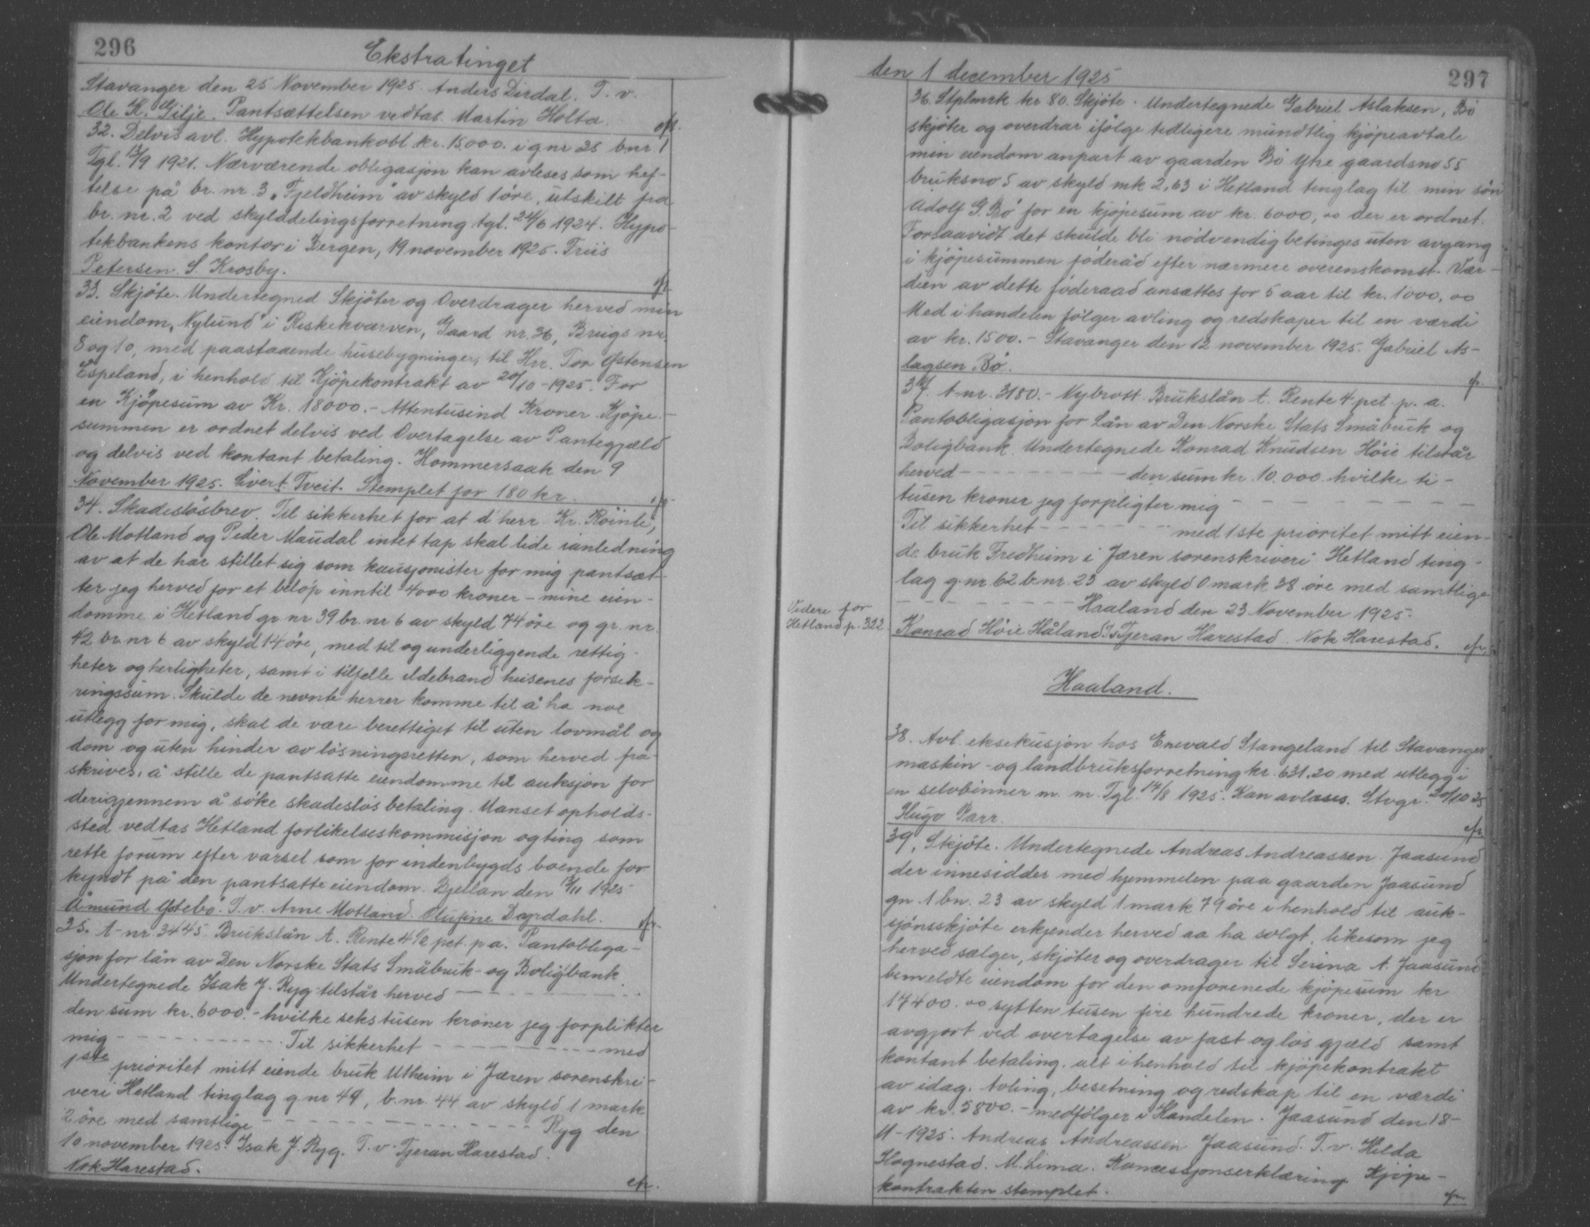 296
Ekstratinget
Stavanger den 25 November 1925. Anders Dirdal. T. v.
Ole K. Gilje. Pantsættelsen vedtas Martin Holta
32. Delvis avl. Hypotekbankobl. kr. 15000. i gnr 25 bnr 1
Tgl. 13/9 1921. Nærværende obligasjon kan avleses som hef-
telse på br. nr. 3 „Fjeldheim" av skyld 1 öre, utskilt fra
br. nr. 2 ved skylddelingsforretning tgl. 24/6 1924. Hypo-
tekbankens kontor i Bergen, 19 november 1925. Friis
Petersen. S. Krosby.
33. Skjöte. Undertegned Skjöter og Overdrager herved min
eiendom, Nylund" i Riskekværven, Gaard nr. 36, Brugs nr.
8 og 10, med paastaaende husebygninger, til Hrr. Tor Østensen
Espeland, i henhold til Kjöpekontrakt av 20/10-1925. For
en Kjöpesum av Kr. 18000.- Attentusind Kroner. Kjöpe-
summen er ordnet delvis ved Overtagelse av Pantegjæld
og delvis ved kontant betaling. Hommersaak den 9
November 1925. Sivert Tveit. Stemplet for 180 kr.
34. Skadeslösbrev. Til sikkerhet for at d'herr. Kr. Röinli,
Ole Motland og Peder Maudal intet tap skal lide ianledning
av at de har stillet sig som kausjonister for mig pantsæt-
ter jeg herved for et belöp inntil 4000 kroner - mine eien-
domme i Hetland gr nr 39 br. nr 6 av skyld 74 öre og gr. nr.
42 br. nr 6 av skyld 14 öre, med til og underliggende rettig-
heter og herligheter, samt i tilfelle ildebrand husenes forsik-
ringssum. Skulde de nevnte herrer komme til å ha noe
utlegg for mig, skal de være berettiget til uten lovmål og
dom og uten hinder av lösningsretten, som herved fra
skrives, å stille de pantsatte eiendomme til auksjon for
derigjennem å söke skadeslös betaling. Uanset opholds-
sted vedtas Hetland forlikelseskommisjon og ting som
rette forum efter varsel som for indenbygds boende for
kyndt på den pantsatte eiendom. Bjellan den 9/11 1925
Åmund Östebö. T. v. Arne Motland. Olufine Dagdahl.
25. A-nr 3445. Brukslån A. Rente 4 1/2 pct. p.a. Pantobliga-
sjon for lån av Den Norske Stats Småbruk- og Boligbank.
Undertegnede Isak J. Ryg tilstår herved
den sum kr. 6000.- hvilke sekstusen kroner jeg forplikter
mig - Til sikkerhet - med
1ste prioritet mitt eiende bruk Utheim i Jæren sorenskri-
veri Hetland tinglag g nr 49, b. nr. 44 av skyld 1 mark
2 öre med samtlige - Ryg den
10 november 1925. Isak J. Ryg. T. v. Tjeran Harestad.
Nok Harestad.
297
den 1 december 1925
36. Stplmrk kr 80. Skjöte. Undertegnede Gabriel Aslaksen, Bö
skjöter og overdrar ifölge tidligere mundtlig kjöpeavtale
min eiendom anpart av gaarden Bö Yhe gaardsno 55
bruksno 5 av skyld mk 2,63 i Hetland tinglag til min sön
Adolf G. Bö for en kjöpesum av kr. 6000,00 der er ordnet.
Forsaavidt det skulde bli nödvendig betinges uten avgang
i kjöpesummen föderåd efter nærmere overenskomst. Vær-
dien av dette föderaad ansættes for 5 aar til kr. 1000,00
Med i handelen fölger avling og redskaper til en værdi
av kr. 1500.- Stavanger den 12 november 1925. Gabriel As-
lagsen Bö.
37. A-nr. 3180.- Nybrott Brukslån A. Rente 4 pct. p. a.
Pantobligasjon for Lån av Den Norske Stats Småbruk og
Boligbank. Undertegnede Konrad Knudsen Höie tilstår
herved - den sum kr. 10.000. hvilke ti-
tusen kroner jeg forpligter mig
Til sikkerhet - med 1ste prioritet mitt eien-
de bruk Fredheim i Jæren sorenskriveri Hetland ting-
lag g. nr 62 b. nr. 23 av skyld 0 mark 38 öre med samtlige
Hraland den 23 November 1925.
Videre for
Hetland p. 322
Konrad Höie Håland. Tjeran Harestad. Nok Harestad.
Haaland.
38. Avl. eksekusjon hos Enevald Stangeland til Stavanger
maskin- og landbruksforretning kr. 631.20 med utlegg i
en selvbinner m. m. Tgl 14/8 1925. Kan avlæses. Stvgr. 20/10 25
Hugo Parr.
39. Skjöte. Undertegnede Andreas Andreassen Jaasund
der innesidder med hjemmelen paa gaarden Jaasund
gn. 1 bn. 23 av skyld 1 mark 79 öre i henhold til auk-
sjonsskjöte erkjender herved aa ha solgt, likesom jeg
herved sælger, skjöter og overdrager til Serina A. Jaasund
bemeldte eiendom for den omforenede kjöpesum kr
17400.00 sytten tusen fire hundrede kroner, der er
avgjort ved overtagelse av fast og lös gjæld samt
kontant betaling, alt i henhold til kjöpekontrakt
av idag. Avling, besetning og redskap til en værdi
av kr. 5800.- medfölger i Handelen. Jaasund den 18-
11-1925. Andreas Andreassen Jaasund. T. v. Hilda
Hognestad. M. Lima. Koncessjonserklæring. Kjöpe-
kontrakten stemplet.